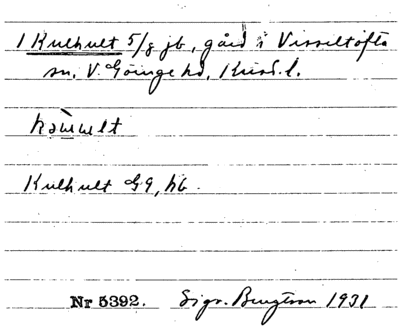 1 Kulhult 5/8 jb, gård i Visseltofta
sn, V. Göinge hd, Krist. l.
Kulhult G9, hb.
Nr 5392. Sigv. Bengtson 1931